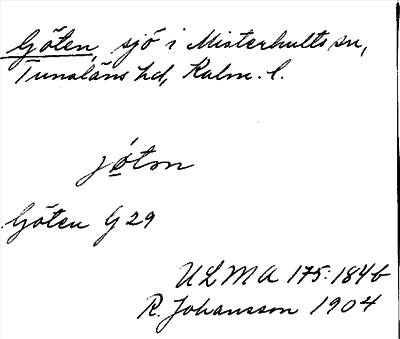 Göten, sjö i Misterhults sn,
Tunaläns hd, Kalm. l.
jǿtn
Göten G 29
ULMA 175:184 b
R. Johansson 1904